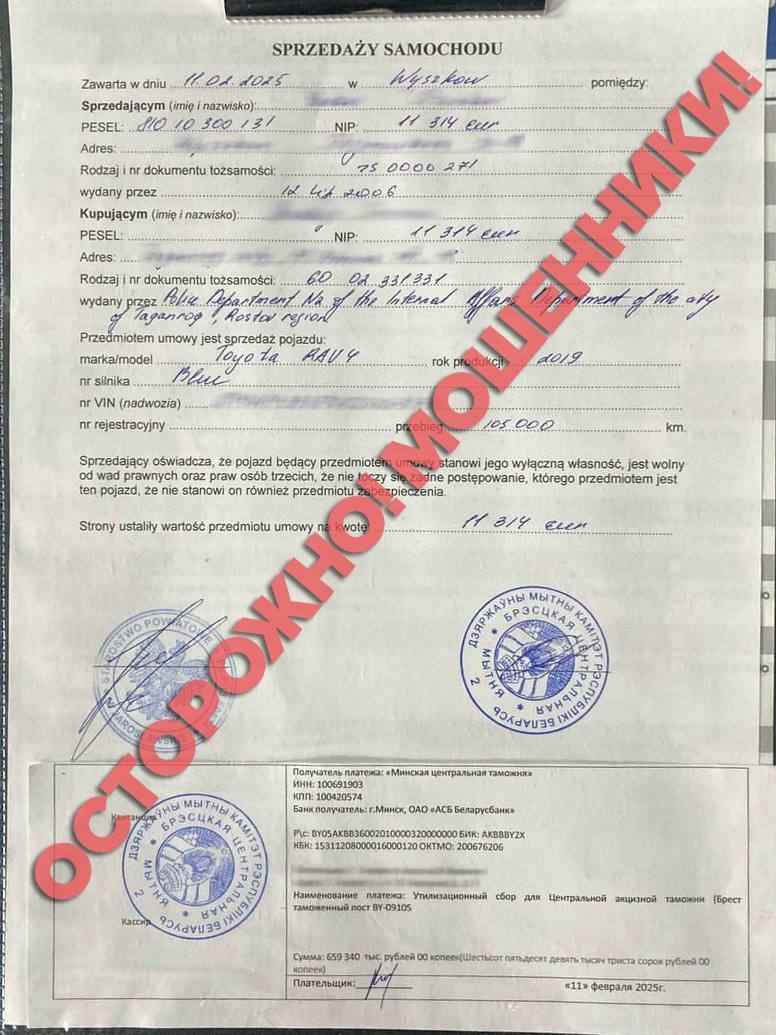 SPRZEDAŻY SAMOCHODU
Zawarta w dniu 11.02.2025 w Wyszkow pomiędzy:
Sprzedającym (imię i nazwisko):
PESEL: 810 10 300 131 NIP: 11 314 eur
Adres:
Rodzaj i nr dokumentu tożsamości: 75 0000 271
wydany przez 12 2006
Kupującym (imię i nazwisko):
PESEL: NIP: 11 314 eur
Adres:
Rodzaj i nr dokumentu tożsamości: 60 02 331331
wydany przez Police Department of the Internal Affairs Department of the city
of Taganrog, Rostov region
Przedmiotem umowy jest sprzedaż pojazdu:
marka/model Toyota RAV4 rok produkcji 2019
nr silnika Blue
nr VIN (nadwozia)
nr rejestracyjny przebieg 105 000 km.
Sprzedający oświadcza, że pojazd będący przedmiotem umowy stanowi jego wyłączną własność, jest wolny
od wad prawnych oraz praw osób trzecich, że nie toczy się żadne postępowanie, którego przedmiotem jest
ten pojazd, że nie stanowi on również przedmiotu zabezpieczenia.
Strony ustaliły wartość przedmiotu umowy na kwotę 11 314 eur
ОСТОРОЖНО! МОШЕННИКИ!
STAROSTWO POWIATOWE
ДЗЯРЖАЎНЫ МЫТНЫ КАМІТЭТ РЭСПУБЛІКІ БЕЛАРУСЬ
БРЭСЦКАЯ ЦЕНТРАЛЬНАЯ МЫТНЯ
2
Квитанция
ДЗЯРЖАЎНЫ МЫТНЫ КАМІТЭТ РЭСПУБЛІКІ БЕЛАРУСЬ
БРЭСЦКАЯ ЦЕНТРАЛЬНАЯ МЫТНЯ
2
Кассир
Получатель платежа: «Минская центральная таможня»
ИНН: 100691903
КПП: 100420574
Банк получатель: г.Минск, ОАО «АСБ Беларусбанк»
Р\с: BY05AKBB36002010000320000000 БИК: AKBBBY2X
КБК: 15311208000016000120 ОКТМО: 200676206
Наименование платежа: Утилизационный сбор для Центральной акцизной таможни (Брест
таможенный пост BY-09105
Сумма: 659 340 тыс. рублей 00 копеек(Шестьсот пятьдесят девять тысяч триста сорок рублей 00
копеек)
Плательщик: «11» февраля 2025г.